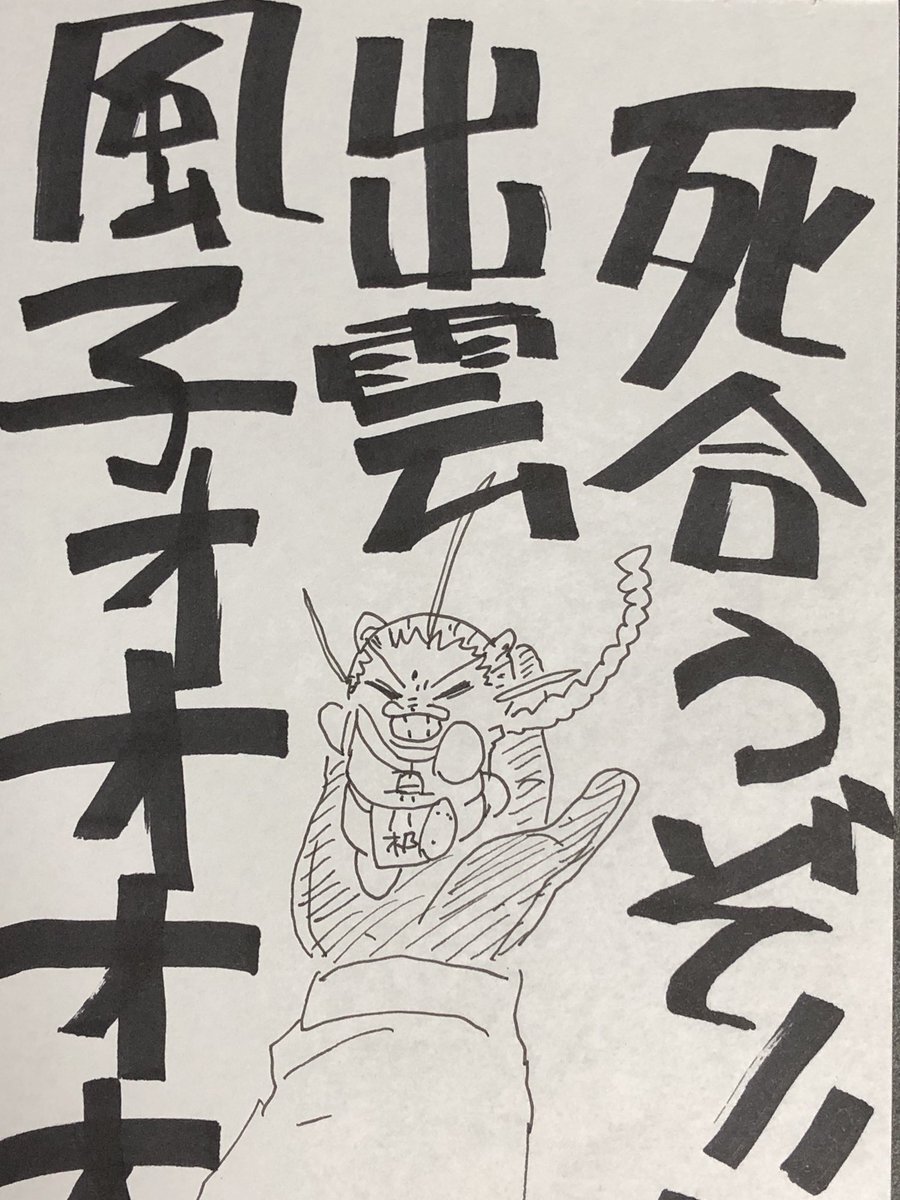 死合うぞ!!
出雲
風子オオオオ
机